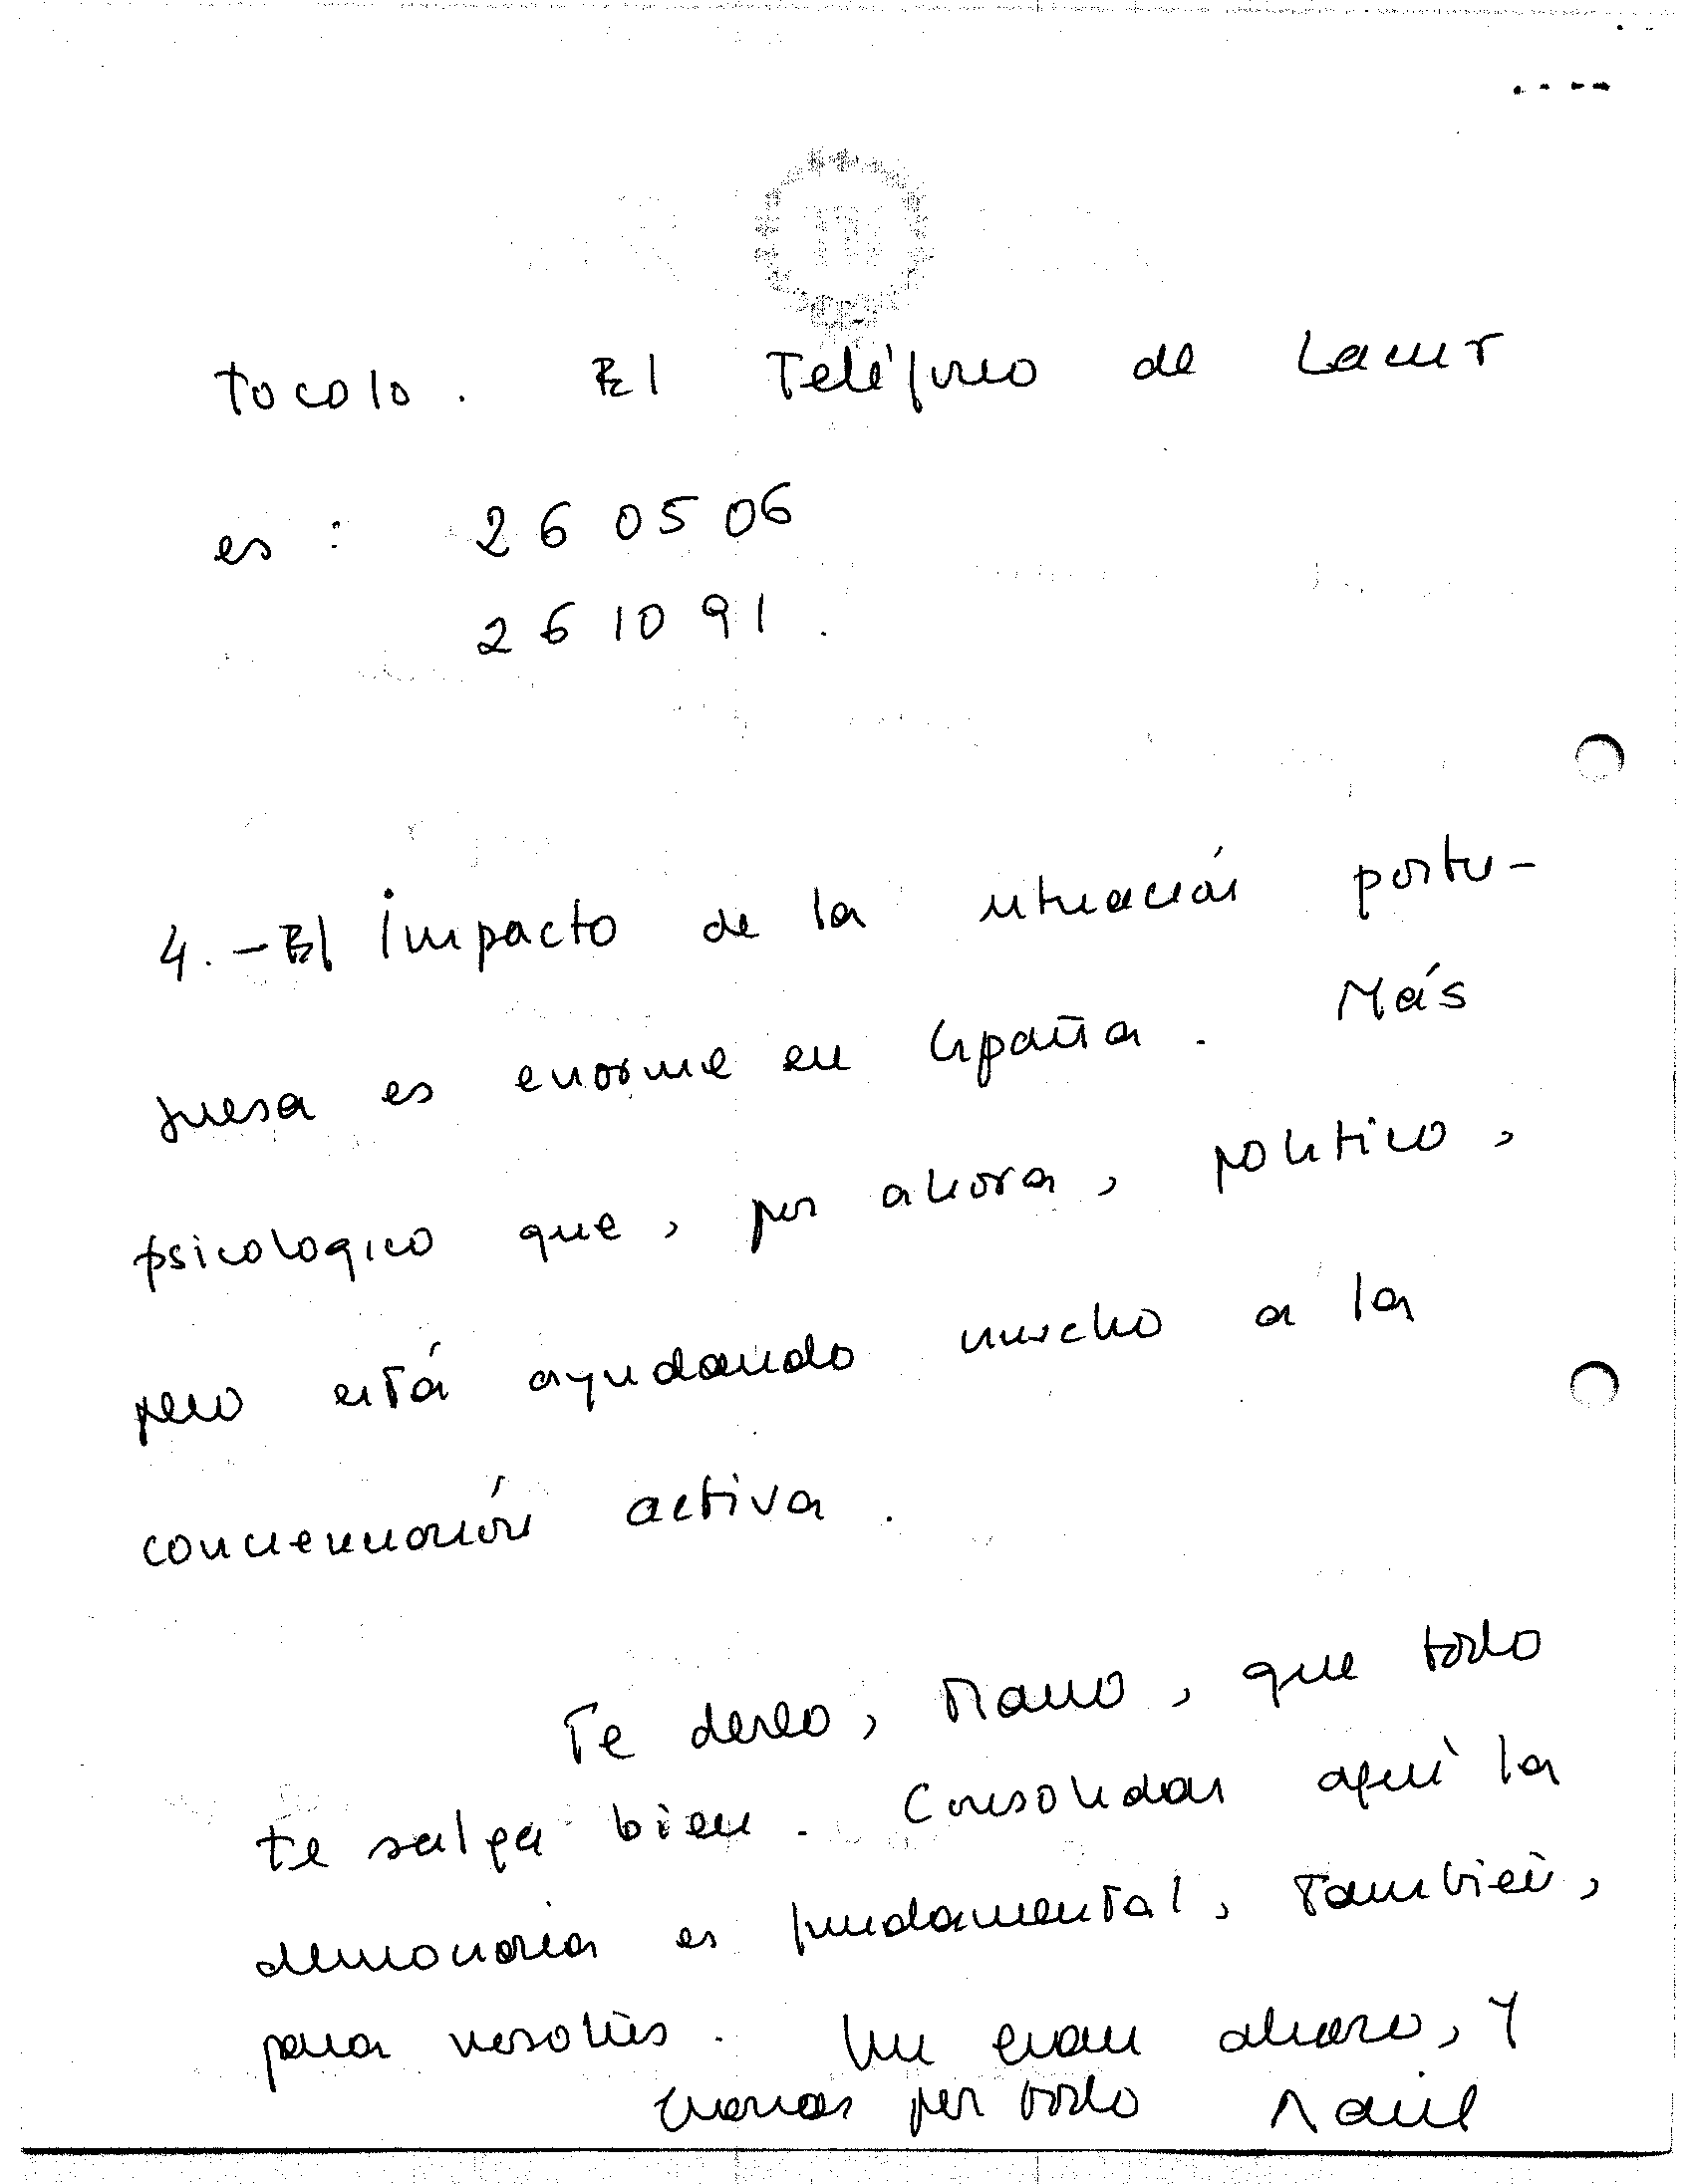 tocolo. El Teléfono de Lacur
es: 260506
261091.
4.-El impacto de la situación portu-
guesa es enorme en España. Más
psicologico que, por ahora, politico,
pero está ayudando mucho a la
concienciación activa.
Te deseo, Mario, que todo
te salga bien. Consolidar aquí la
democracia es fundamental, también,
para nosotros. Un gran abrazo, y
gracias por todo Raúl